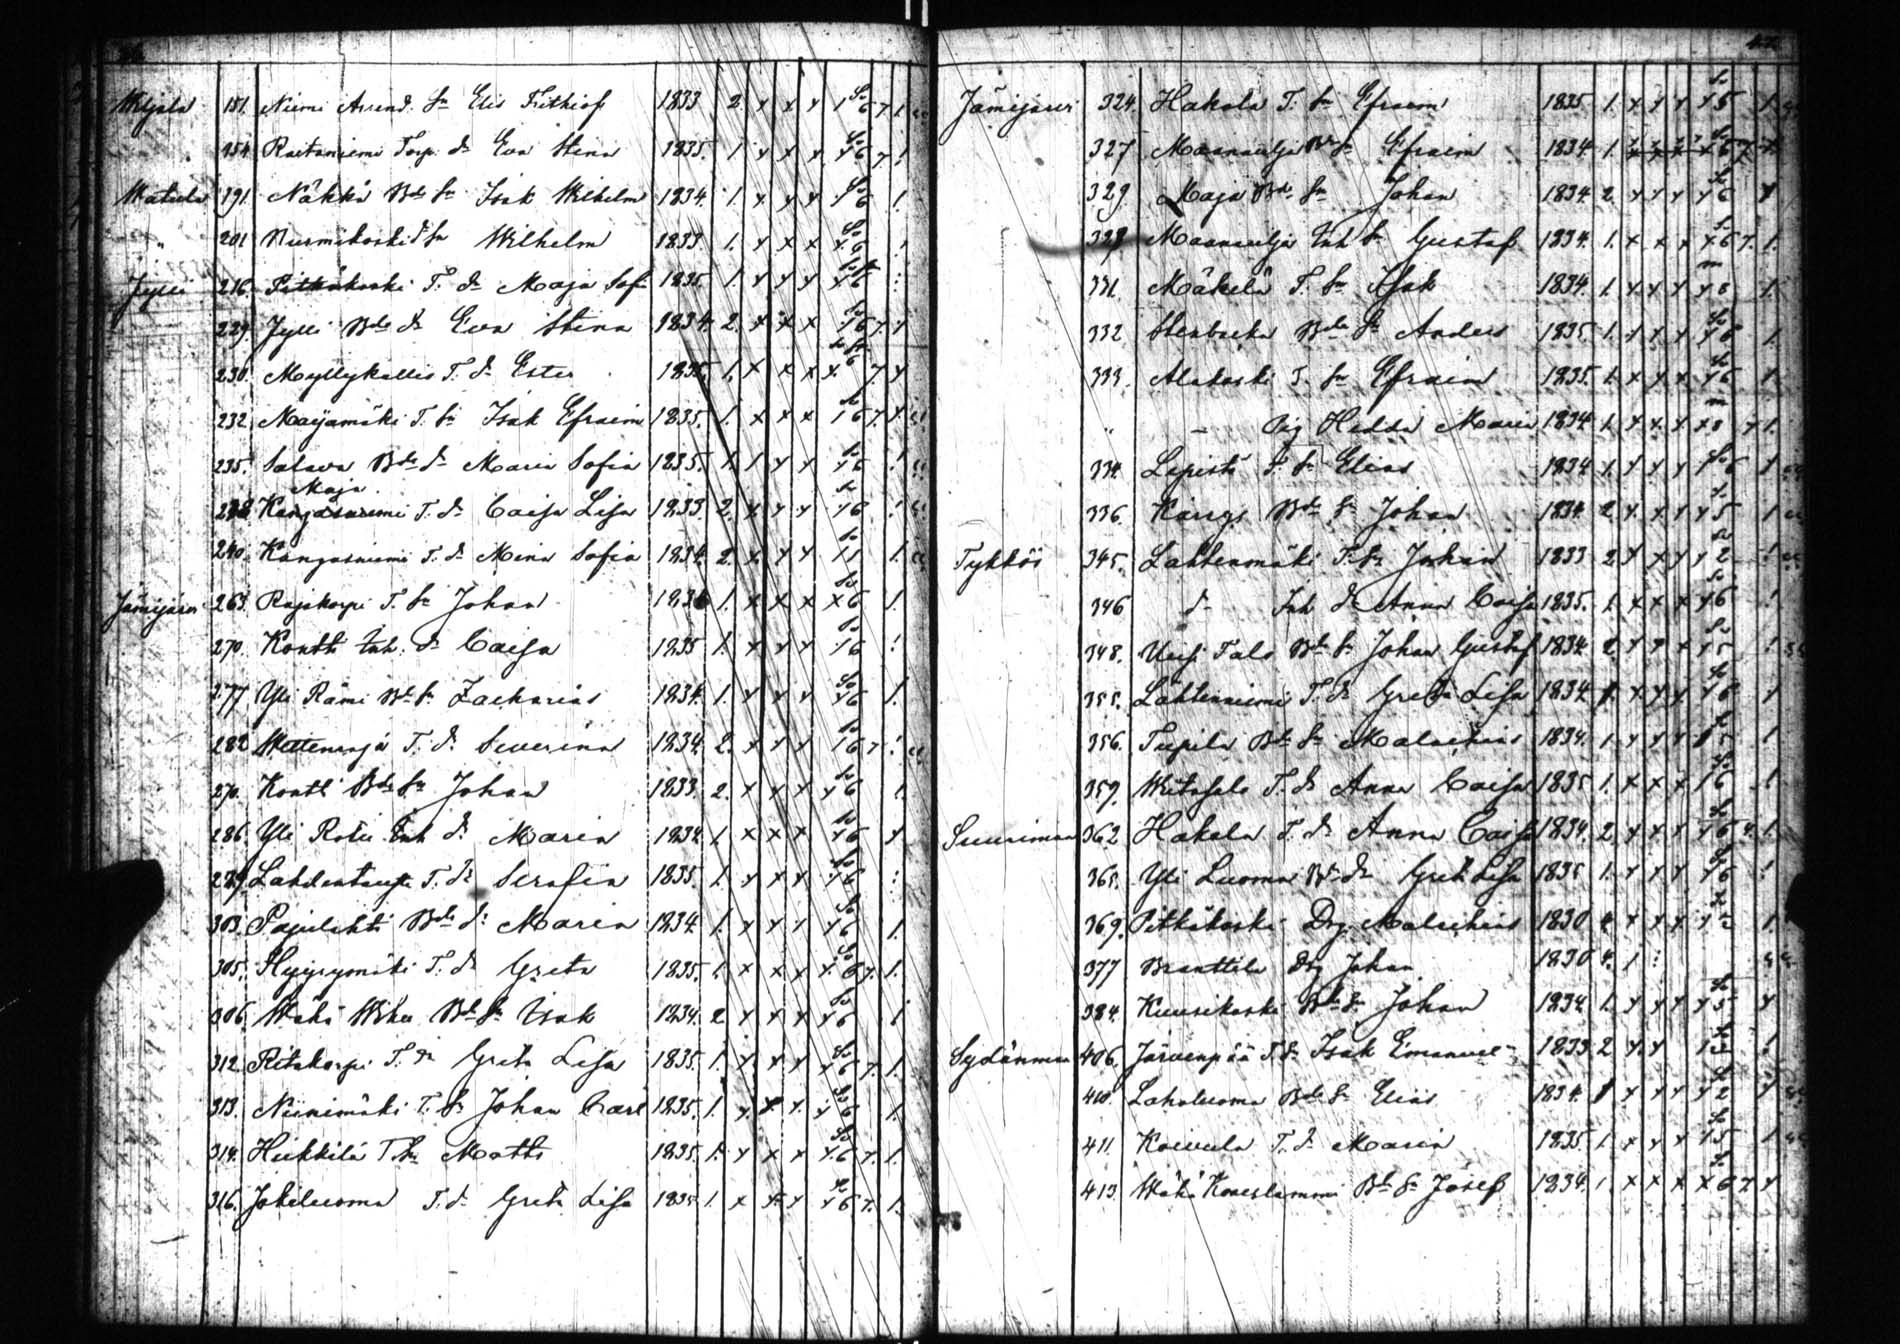 Wiljala 151. Niemi Arrend. Sn Elis Frithiof 1833 2. x x x 1 6 7 1
154 Raitaniemi Torp. dr Eva Stina 1835. 1. x x x x 6 7 !
Matula 191. Näkki Bde Sn Isak Wilhelm 1834. 1. x x x x 6 !
" 201 Nurmikoski d Sn Wilhelm 1833. 1. x x x x 6 !
Jylli 216. Pitkäkoski T. dr Maja Sofi 1835. 1. x x x x 6 !
229. Jylli Bde dr Eva Stina 1834. 2. x x x x 6 7. x
230. Myllykallio T. dr Ester 1835. 1. x x x x 6 7. x
232. Maijamäki T. Sn Isak Efraim 1835. 1. x x x 1 6 7. x
235. Salava Bde dr Maria Sofia 1835. 1. 1 x x x 6 !
Maja
238 Kangasniemi T. dr Caisa Lisa 1833. 2. x x x x 6 !
240. Kangasniemi T. dr Mina Sofia 1834. 2. x x x !
Jämijärvi 263. Rajakorpi T. Sn Johan 1834 1. x x x x 6 !
270. Kontti Inh. dr Caisa 1835 1. x x x x 6 !
277 Yli Rämi Bde Sn Zacharias 1834. 1. x x x x 6 !
282 T. dr Severina 1834. 2. x x x 1 6 7 !
270. Kontti Bde Sn Johan 1833. 2. x x x x 6 !
286. Yli Inh dr Maria 1834. 1. x x x x 6 x
289. T. dr Serafia 1835. 1. x x x x 6 !
303. Bde dr Maria 1834. 1. x x x x 6 1.
305. Hyyrymäki T. dr Greta 1835. 1. x x x x 6 7. 1.
306. Wähä Wiheri Bde Sn Isak 1834. 2 x x x x 6 !
312. Ritakorpi T. dr Greta Lisa 1835. 1. x x x x 6 7. 1.
313. Niinimäki T. Sn Johan Carl 1835. 1. x x x x 6 1.
314. Heikkilä T. Sn Matts 1835. 1. x x x x 6 7. 1.
316. Jokiluoma T. dr Greta Lisa 1835 1. x x x x 6 7. 1.
47
Jämijärvi 324. Hakala T. Sn Efraim 1835. 1. x x x x 5 1.
327 Bde Sn Efraim 1834 1. x x x x 6 7. x
329. Maja Bde Sn Johan 1834 2. x x x x 6 x
Inh Sn Gustaf 1834. 1. x x x x 6 7. 1.
331. Mäkelä T. Sn Isak 1834. 1. x x x x 8 1.
332. Stenbacka Bde Sn Anders 1835. 1. x x x x 6 1.
333. Alakoski T. Sn Efraim 1835. 1. x x x x 6 1.
" – Pig Hedda Maria 1834 1. x x x x 8 7 1.
334. Lepistö T. Sn Elias 1834 1. x x x x 6 1
336. Kangs Bde Sn Johan 1834 2. x x x x 5 1
Tykköö 345. Lahtenmäki T. Sn Johan 1833 2 x x x x 2 !
346 dr Inh dr Anna Caisa 1835. 1. x x x x 6 !
348. Uusi Talo Bde Sn Johan Gustaf 1834. 2. x x x x 5 !
355. Lahtenniemi T. dr Greta Lisa 1834 1. x x x x 6 1
356. Tupila Bde Sn Malachias 1834. 1. x x x 5 !
359. Wiitasalo T. dr Anna Caisa 1835 1. x x x 1 6 !
Suurimaa 362 Hakala T. dr Anna Caisa 1834. 2. x x x x 6 1.
365. Yli Luoma Bde dr Greta Lisa 1835 1. x x x x 6 !
369. Pitkäkoski Drg. Malachias 1830 4 x x x x 2 1.
377 Branttila Drg Johan 1830 4. 1
384. Kuusikoski Bde Sn Johan 1834. 1. x x x x 5 x
Sydänmaa 406. Järvenpää T. Sn Isak Emanuel 1833 2 x x 1 2 !
410. Laholuoma Bde Sn Elias 1834. 1 x x x x 2 1
411. Koivula T. dr Maria 1835. 1. x x x 1 5 1
413. Wähä Bde Sn Josef 1834. 1. x x x x 6 7. x